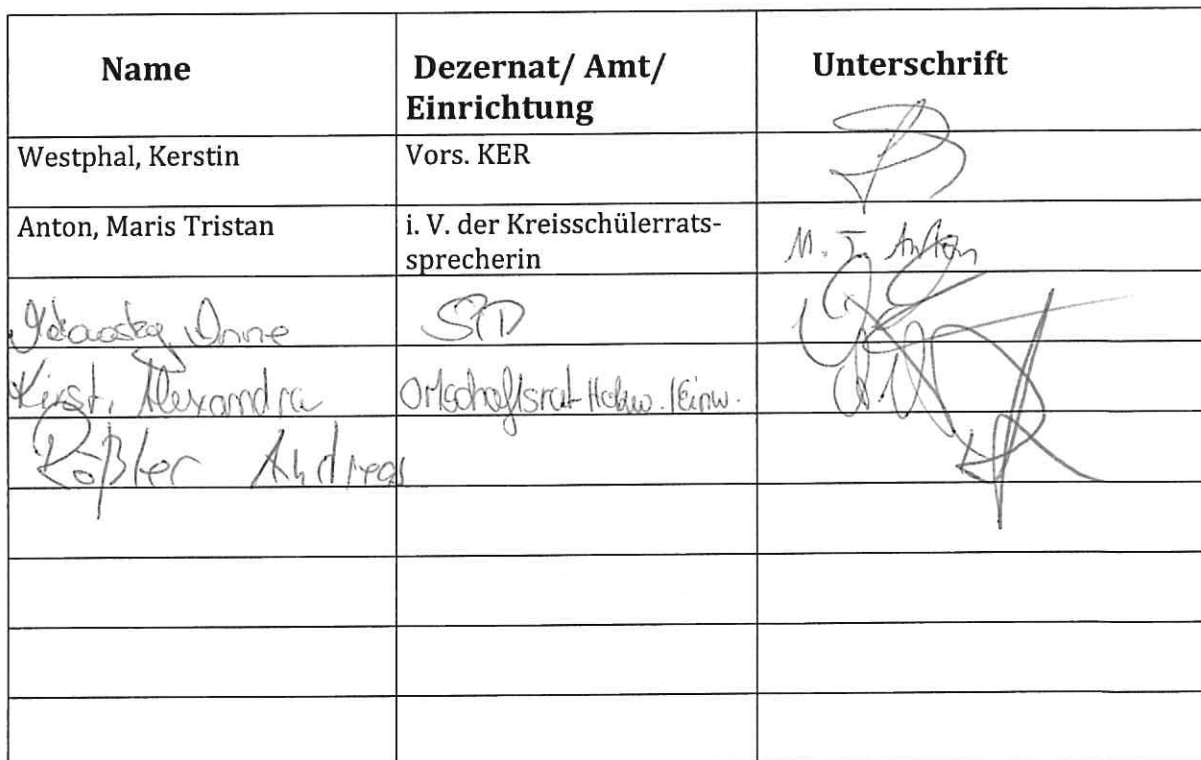 Name Dezernat/ Amt/ Unterschrift
Einrichtung
Westphal, Kerstin Vors. KER
Anton, Maris Tristan i. V. der Kreisschülerrats-
sprecherin M. T. Anton
Anne SPD
Kirst, Alexandra Ortschaftsrat
Rößler Andreas